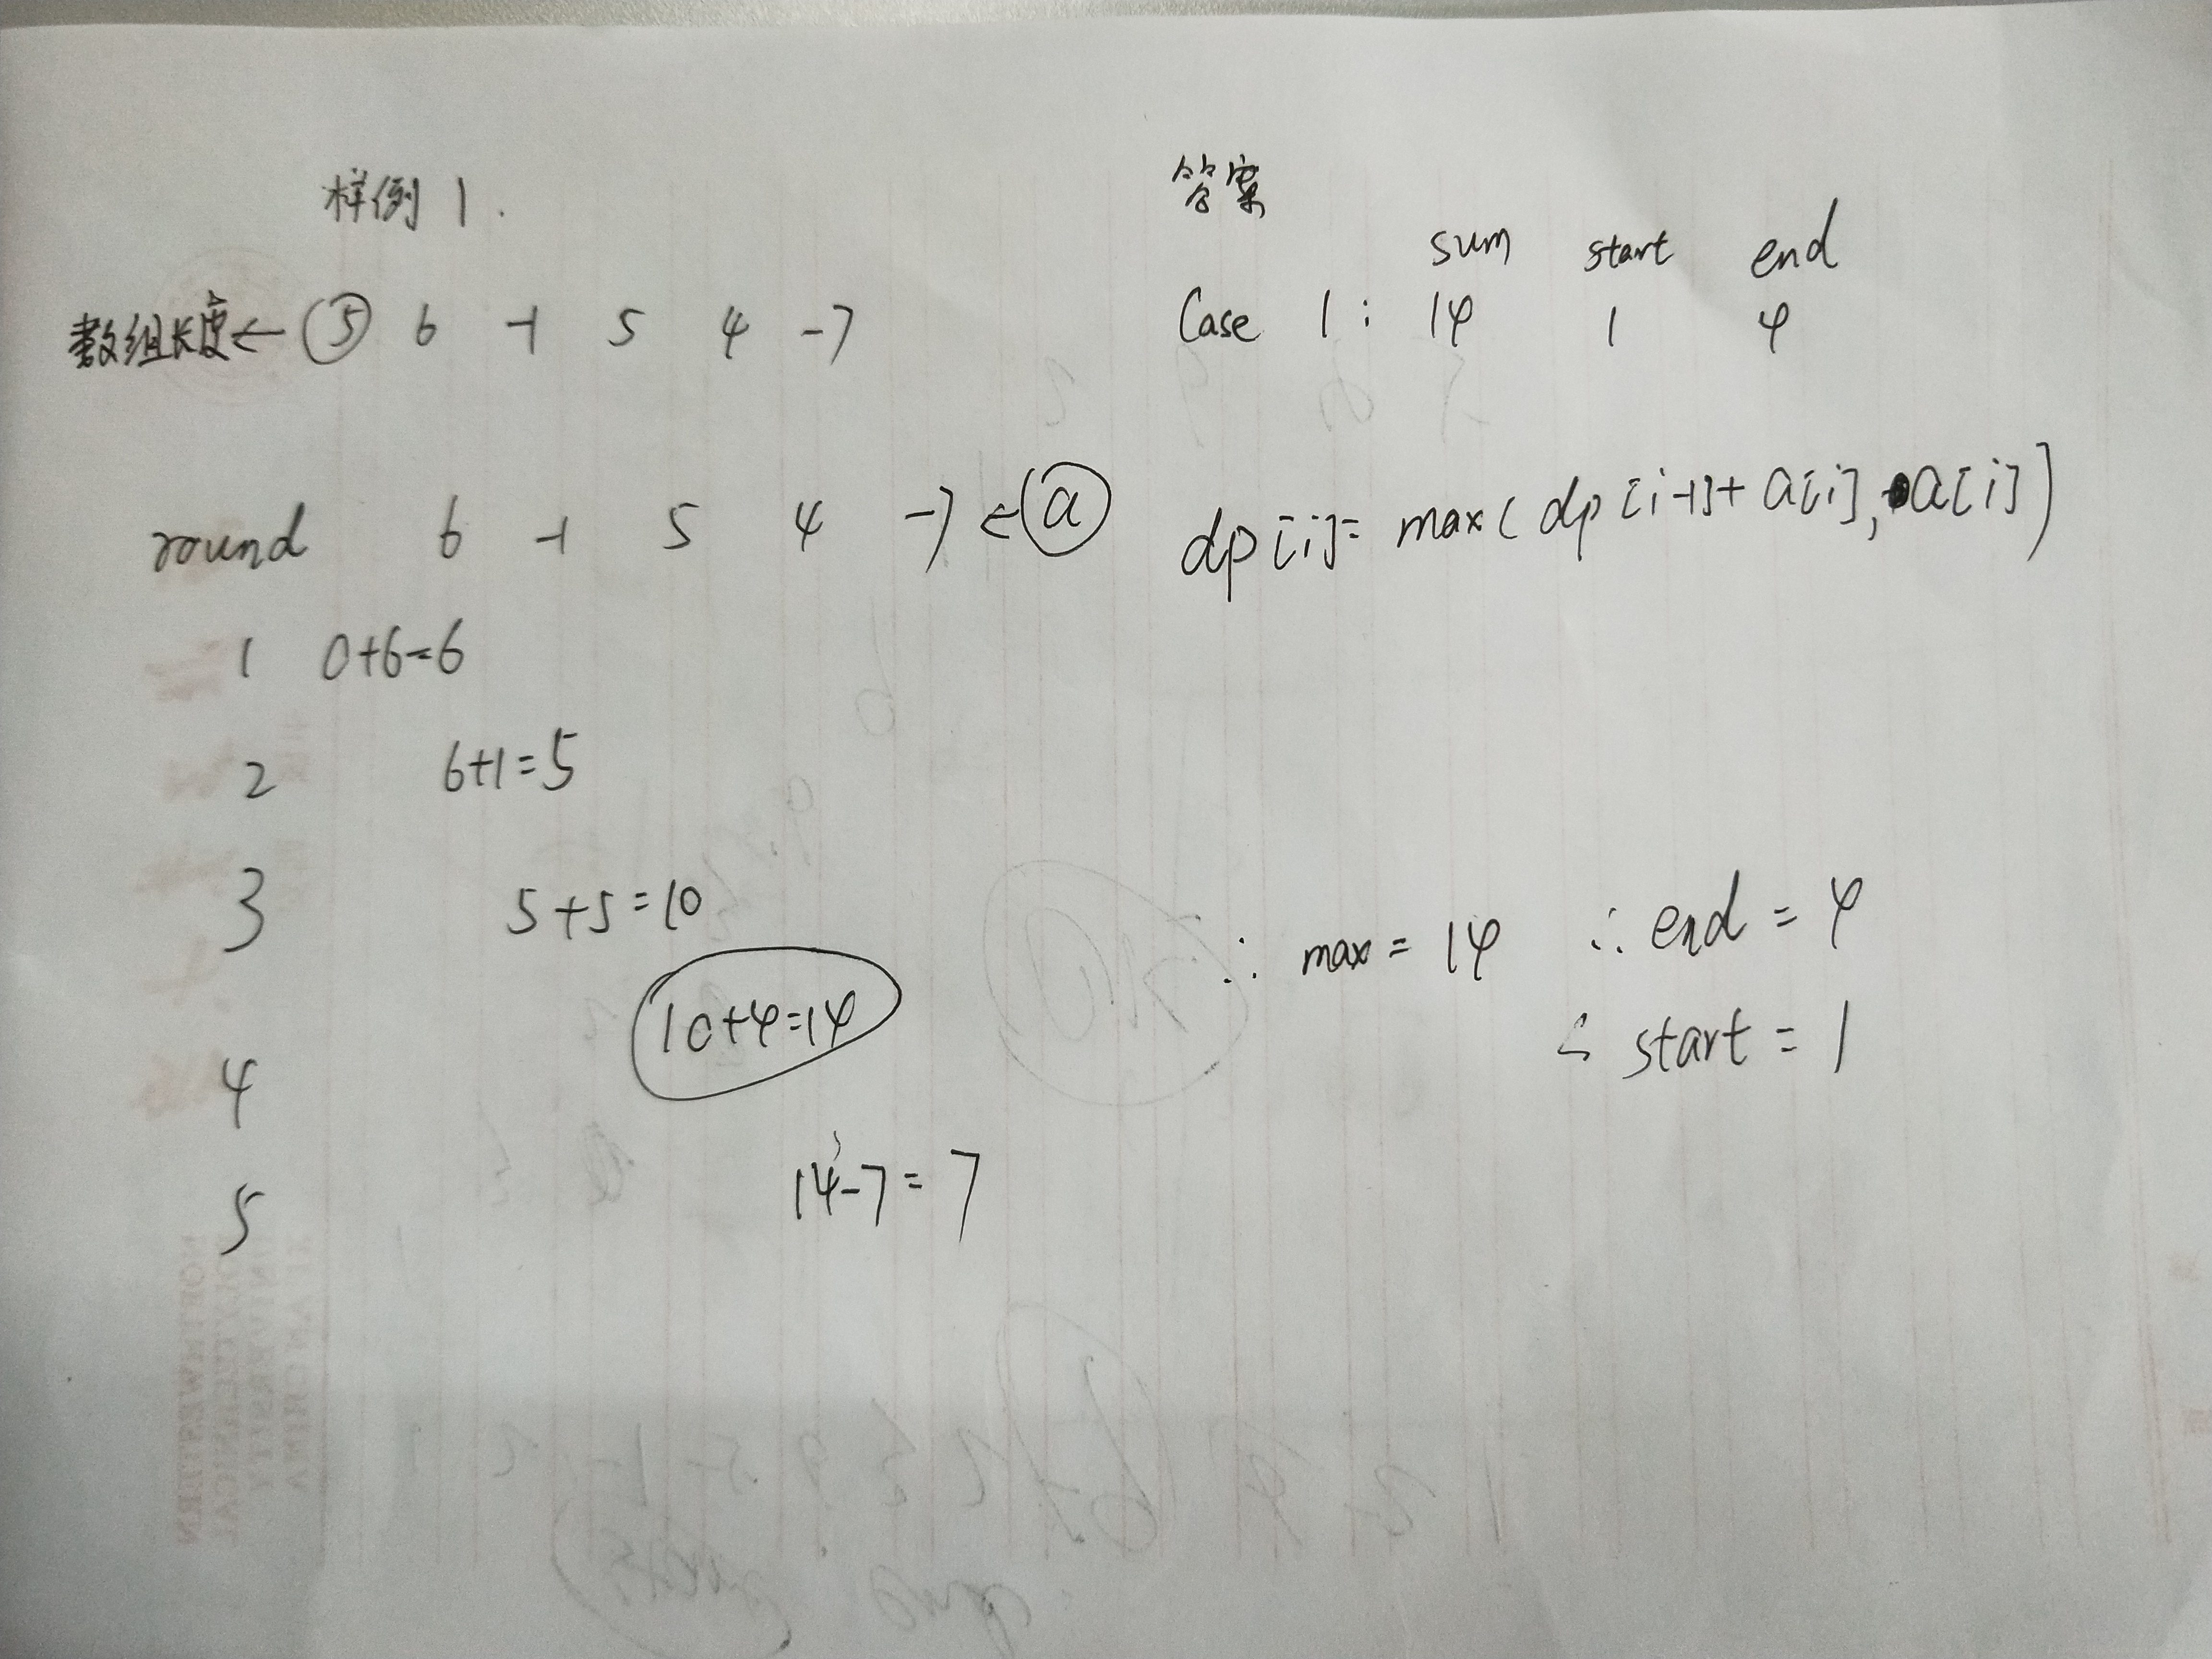 样例 1.
答案
sum start end
数组长度← 5 6 -1 5 4 -7
Case 1: 14 1 4
round 6 -1 5 4 -7 ← a
dp[i]= max( dp[i-1]+ a[i], a[i])
1 0+6=6
2 6+1=5
3 5+5=10
∴ max = 14 ∴ end = 4
4 10+4=14
∴ start = 1
5 14-7=7
NORTHWESTERN
POLYTECHNICAL
UNIVERSITY
XI'AN CHINA